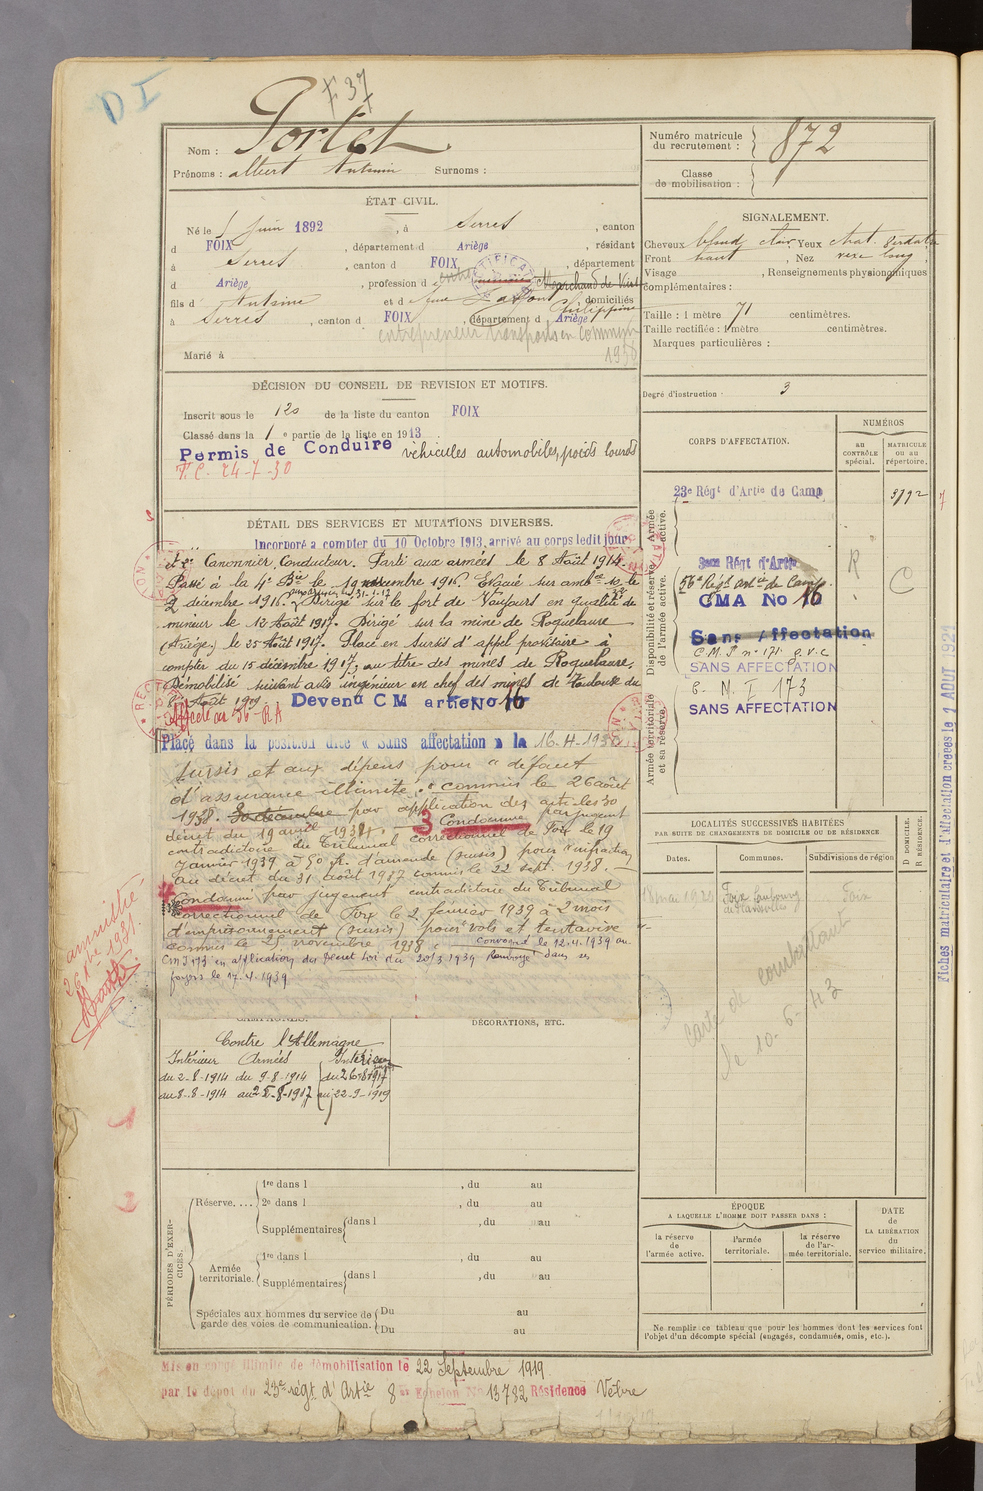 D I
F 37
Nom : Portet
Prénoms : Albert Antonin Surnoms :
Numéro matricule du recrutement : 872
Classe de mobilisation :
ÉTAT CIVIL.
Né le 5 Juin 1892, à Serres, canton
d FOIX, département d Ariège, résidant
à Serres, canton d FOIX, département
d Ariège, profession d Marchand de Vins
fils d Antoine et d domiciliés
Philippine
à Serres, canton d FOIX, département d Ariège
entrepreneur transports en commun
1950
Marié à
SIGNALEMENT.
Cheveux blond clair Yeux chat. verdatre
Front haut, Nez vexe long
Visage , Renseignements physionomiques
complémentaires :
Taille : 1 mètre 71 centimètres.
Taille rectifiée : 1 mètre centimètres.
Marques particulières :
Degré d'instruction : 3
DÉCISION DU CONSEIL DE REVISION ET MOTIFS.
Inscrit sous le n° 120 de la liste du canton FOIX
Classé dans la 1e partie de la liste en 1913
Permis de Conduire véhicules automobiles, poids lourds
F.C. 24-7-30
CORPS D'AFFECTATION.
NUMÉROS
au CONTRÔLE spécial.
MATRICULE OU AU répertoire.
Armée active.
23e Régt d'Artie de Camp 3792
Disponibilité et réserve de l'armée active.
56e Régt Art ie de Camp. R C
CMA No 16
Sans Affectation
C.M.I n° 171 g.v.c
SANS AFFECTATION
Armée territoriale et sa réserve.
C.M.I 173
SANS AFFECTATION
DÉTAIL DES SERVICES ET MUTATIONS DIVERSES.
Incorporé a compter du 10 Octobre 1913, arrivé au corps ledit jour
et 2e Canonnier Conducteur. Parti aux armées le 8 Août 1914.
Passé à la 4e Bie le 19 novembre 1916. Evacué sur ambce 10 le
2 décembre 1916. Dirigé sur le fort de Vaujours en qualité de
mineur le 12 Août 1917. Dirigé sur la mine de Roquelaure
(Ariège) le 25 Août 1917. Placé en sursis d'appel provisoire à
compter du 15 décembre 1917, au titre des mines de Roquelaure,
Démobilisé suivant avis ingénieur en chef des mines de Toulouse du
8 Août 1919
Affecté au 56e R A
Devenu C M artie No 16
Placé dans la position dite « Sans affectation » le 16-4-193
sursis et aux dépens pour « défaut
d'assurance illimité » commis le 26 août
1938. par application des articles 30
décret du 19 avril 1934.
3 Condamné par jugement
contradictoire du Tribunal correctionnel de Foix le 19
Janvier 1939 à 50 fr. d'amende (sursis) pour « infraction
au décret du 31 août 1937 commis le 22 sept. 1938. —
Condamné par jugement contradictoire du Tribunal
Correctionnel de Foix le 2 février 1939 à 2 mois
d'emprisonnement (sursis) pour vols et tentative
commis le 25 novembre 1938. Convoqué le 12.4.1939 au
CMI 173 en application du Décret Loi du 20/3 1939 Renvoyé dans ses
foyers le 17.4.1939
amnistié
CAMPAGNES.
Contre l'Allemagne
Intérieur Armées Intérieur
du 2-8-1914 du 9-8-1914 du 26-8-1917
au 8-8-1914 au 25-8-1917 au 22-9-1919
DÉCORATIONS, ETC.
LOCALITÉS SUCCESSIVES HABITÉES
PAR SUITE DE CHANGEMENTS DE DOMICILE OU DE RÉSIDENCE
Dates. Communes. Subdivisions de région
D DOMICILE.
R RÉSIDENCE.
Foix Foix
Carte de combattant
le 10-6-43
Fiches matriculaire et d'affectation créées le 1 AOUT 1921
PÉRIODES D'EXERCICES.
Réserve.... 1re dans l , du au
2e dans l , du au
Supplémentaires dans l , du au
Armée territoriale. 1re dans l , du au
Supplémentaires dans l , du au
Spéciales aux hommes du service de garde des voies de communication. Du au
Du au
ÉPOQUE
A LAQUELLE L'HOMME DOIT PASSER DANS :
la réserve de l'armée active.
l'armée territoriale.
la réserve de l'armée territoriale.
DATE de LA LIBÉRATION du service militaire.
Ne remplir ce tableau que pour les hommes dont les services font
l'objet d'un décompte spécial (engagés, condamnés, omis, etc.).
Mis en congé illimité de démobilisation le 22 Septembre 1919
par le dépôt du 23e régt d'Artie 8e Echelon No 13782 Résidence Vèbre